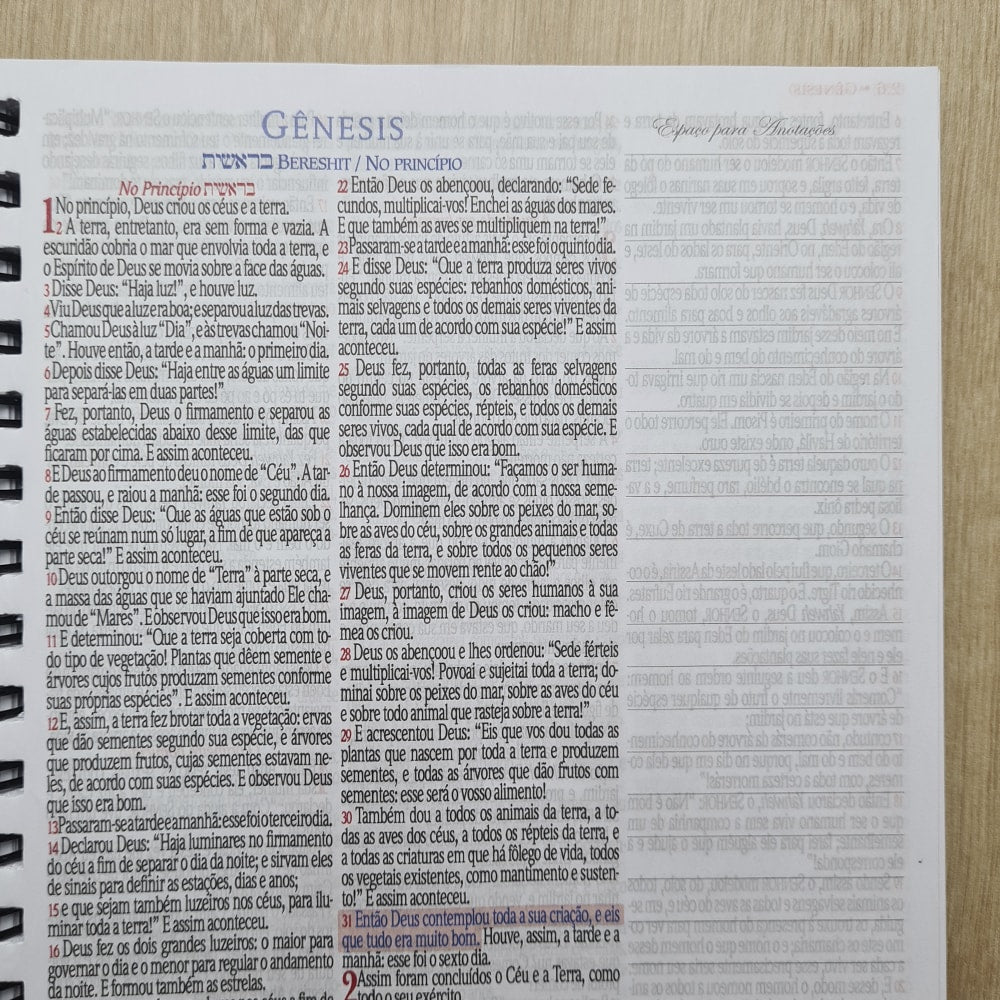 GÊNESIS
בראשית BERESHIT / NO PRINCÍPIO
Espaço para Anotações
No Princípio בראשית
1 No princípio, Deus criou os céus e a terra.
2 A terra, entretanto, era sem forma e vazia. A
escuridão cobria o mar que envolvia toda a terra, e
o Espírito de Deus se movia sobre a face das águas.
3 Disse Deus: “Haja luz!”, e houve luz.
4 Viu Deus que a luz era boa; e separou a luz das trevas.
5 Chamou Deus à luz “Dia”, e às trevas chamou “Noi-
te”. Houve então, a tarde e a manhã: o primeiro dia.
6 Depois disse Deus: “Haja entre as águas um limite
para separá-las em duas partes!”
7 Fez, portanto, Deus o firmamento e separou as
águas estabelecidas abaixo desse limite, das que
ficaram por cima. E assim aconteceu.
8 E Deus ao firmamento deu o nome de “Céu”. A tar-
de passou, e raiou a manhã: esse foi o segundo dia.
9 Então disse Deus: “Que as águas que estão sob o
céu se reúnam num só lugar, a fim de que apareça a
parte seca!” E assim aconteceu.
10 Deus outorgou o nome de “Terra” à parte seca, e
a massa das águas que se haviam ajuntado Ele cha-
mou de “Mares”. E observou Deus que isso era bom.
11 E determinou: “Que a terra seja coberta com to-
do tipo de vegetação! Plantas que dêem semente e
árvores cujos frutos produzam sementes conforme
suas próprias espécies”. E assim aconteceu.
12 E, assim, a terra fez brotar toda a vegetação: ervas
que dão sementes segundo sua espécie, e árvores
que produzem frutos, cujas sementes estavam ne-
les, de acordo com suas espécies. E observou Deus
que isso era bom.
13 Passaram-se a tarde e a manhã: esse foi o terceiro dia.
14 Declarou Deus: “Haja luminares no firmamento
do céu a fim de separar o dia da noite; e sirvam eles
de sinais para definir as estações, dias e anos;
15 e que sejam também luzeiros nos céus, para ilu-
minar toda a terra!” E assim aconteceu.
16 Deus fez os dois grandes luzeiros: o maior para
governar o dia e o menor para regular o andamento
da noite. E formou também as estrelas.
22 Então Deus os abençoou, declarando: “Sede fe-
cundos, multiplicai-vos! Enchei as águas dos mares.
E que também as aves se multipliquem na terra!”
23 Passaram-se a tarde e a manhã: esse foi o quinto dia.
24 E disse Deus: “Que a terra produza seres vivos
segundo suas espécies: rebanhos domésticos, ani-
mais selvagens e todos os demais seres viventes da
terra, cada um de acordo com sua espécie!” E assim
aconteceu.
25 Deus fez, portanto, todas as feras selvagens
segundo suas espécies, os rebanhos domésticos
conforme suas espécies, répteis, e todos os demais
seres vivos, cada qual de acordo com sua espécie. E
observou Deus que isso era bom.
26 Então Deus determinou: “Façamos o ser huma-
no à nossa imagem, de acordo com a nossa seme-
lhança. Dominem eles sobre os peixes do mar, so-
bre as aves do céu, sobre os grandes animais e todas
as feras da terra, e sobre todos os pequenos seres
viventes que se movem rente ao chão!”
27 Deus, portanto, criou os seres humanos à sua
imagem, à imagem de Deus os criou: macho e fê-
mea os criou.
28 Deus os abençoou e lhes ordenou: “Sede férteis
e multiplicai-vos! Povoai e sujeitai toda a terra; do-
minai sobre os peixes do mar, sobre as aves do céu
e sobre todo animal que rasteja sobre a terra!”
29 E acrescentou Deus: “Eis que vos dou todas as
plantas que nascem por toda a terra e produzem
sementes, e todas as árvores que dão frutos com
sementes: esse será o vosso alimento!
30 Também dou a todos os animais da terra, a to-
das as aves dos céus, a todos os répteis da terra, e
a todas as criaturas em que há fôlego de vida, todos
os vegetais existentes, como mantimento e susten-
to!” E assim aconteceu.
31 Então Deus contemplou toda a sua criação, e eis
que tudo era muito bom. Houve, assim, a tarde e a
manhã: esse foi o sexto dia.
2 Assim foram concluídos o Céu e a Terra, como
todo o seu exército.